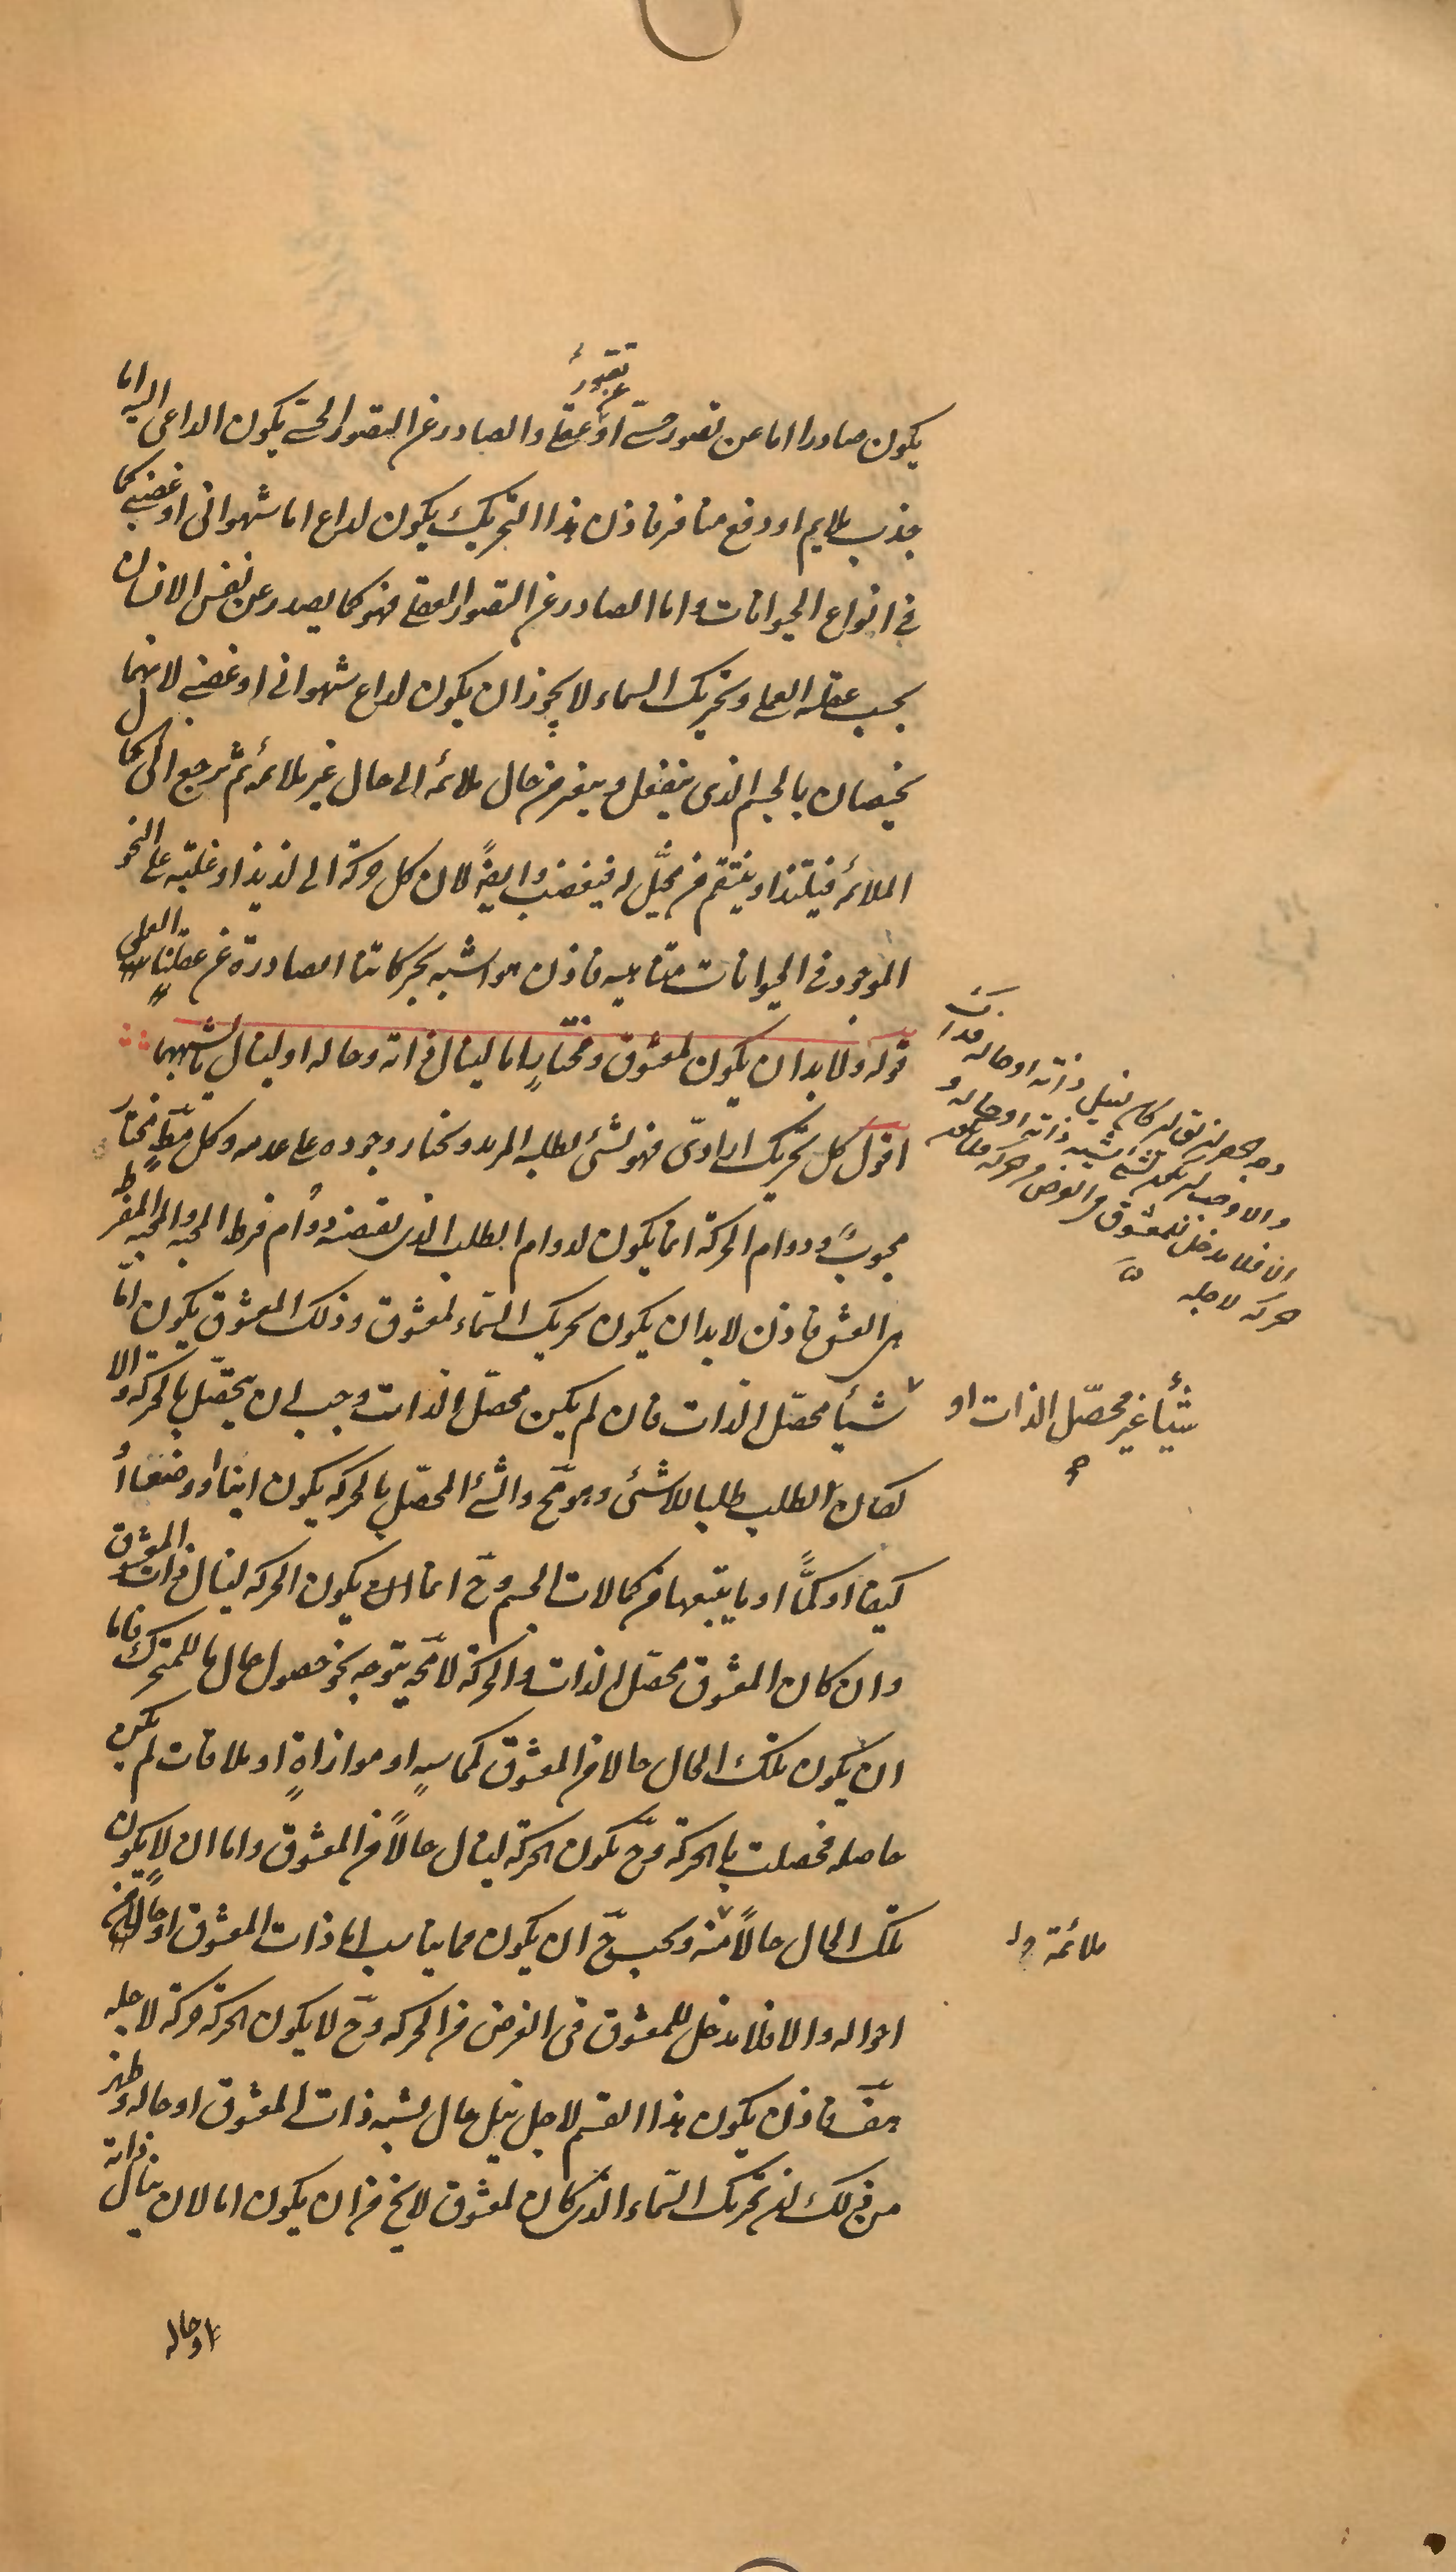 يكون صادرا اما عن تصور حسى او عن تصور عقلى والصادر عن التصور الحسى يكون الداعى اليه اما
جذب ملايم او دفع منافر فاذن هذا التحريك يكون لداع اما شهوانى او غضبى كما
فى انواع الحيوانات واما الصادر عن التصور العقلى فهو كما يصدر عن نفس الانسان
بحسب عقله العملى وتحريك السماء لا يجوز ان يكون لداع شهوانى او غضبى لانهما
يختصان بالجسم الذى ينفعل ويتغير من حال ملائمة الى حال غير ملائمة ثم يرجع الى حال
الملائمة فيلتذ او ينتقم من مخيل له فيغضب وايضً لان كل حركة الى لذيذ او غلبة على النحو
الموجود فى الحيوانات متناهيه فاذن هو اشبه بحركاتنا الصادرة عن عقلنا العملى
قوله ولا بد ان يكون لمعشوق ومختار اما لينال ذاته وحاله او لينال ما يشبههما
اقول كل تحريك ارادىّ فهو لشئ يطلبه المريد ويختار وجوده على عدمه وكل مط مختار
محبوب ودوام الحركة انما يكون لدوام الطلب الذى يقتضيه دوام فرط المحبه والمحبه المفرط
هى العشق فاذن لا بد ان يكون تحريك السّماء لمعشوق وذلك المعشوق يكون امّا
شيأ محصّل الذات فان لم يكن محصّل الذات وجب ان يتحصّل بالحركة والا
لكان الطلب طلبا للاشئ وهو مح والشئ المحصّل بالحركه يكون اينا او وضعا او
كيفا او كمًّا او ما يتبعها من كمالات الجسم وح انما يكون الحركه لينال ذات المعشوق
وان كان المعشوق محصّل الذات والحركة لا محة يتوجه نحو حصول حال ما للمتحرك فاما
ان يكون تلك الحال حالا من المعشوق كمماسةٍ او موازاةٍ او ملاقات لم يكن
حاصله فحصلت بالحركة وح تكون الحركة لينال حالاً من المعشوق واما ان لا يكون
تلك الحال حالاً منه ويجب ح ان يكون مما يناسب اما ذات المعشوق او حالا من
احواله والا فلا مدخل للمعشوق فى الغرض من الحركه وح لا يكون الحركة حركة لاجله
هف فاذن يكون هذا القسم لاجل نيل حال يشبه ذات المعشوق او حاله وظهر
من ذلك ان تحريك السّماء الذى كان لمعشوق لا يخ من ان يكون اما لان ينال ذاته
او حاله
وجه الحصر ان يقال ان كان لنيل ذاته او حاله فذاك
والا وجب ان يكون لشئ يشبه ذاته او حاله و
الا فلا مدخل للمعشوق فى الغرض من حركة
حركه لاجله
شيئًا غير محصّل الذات او
ملائمة